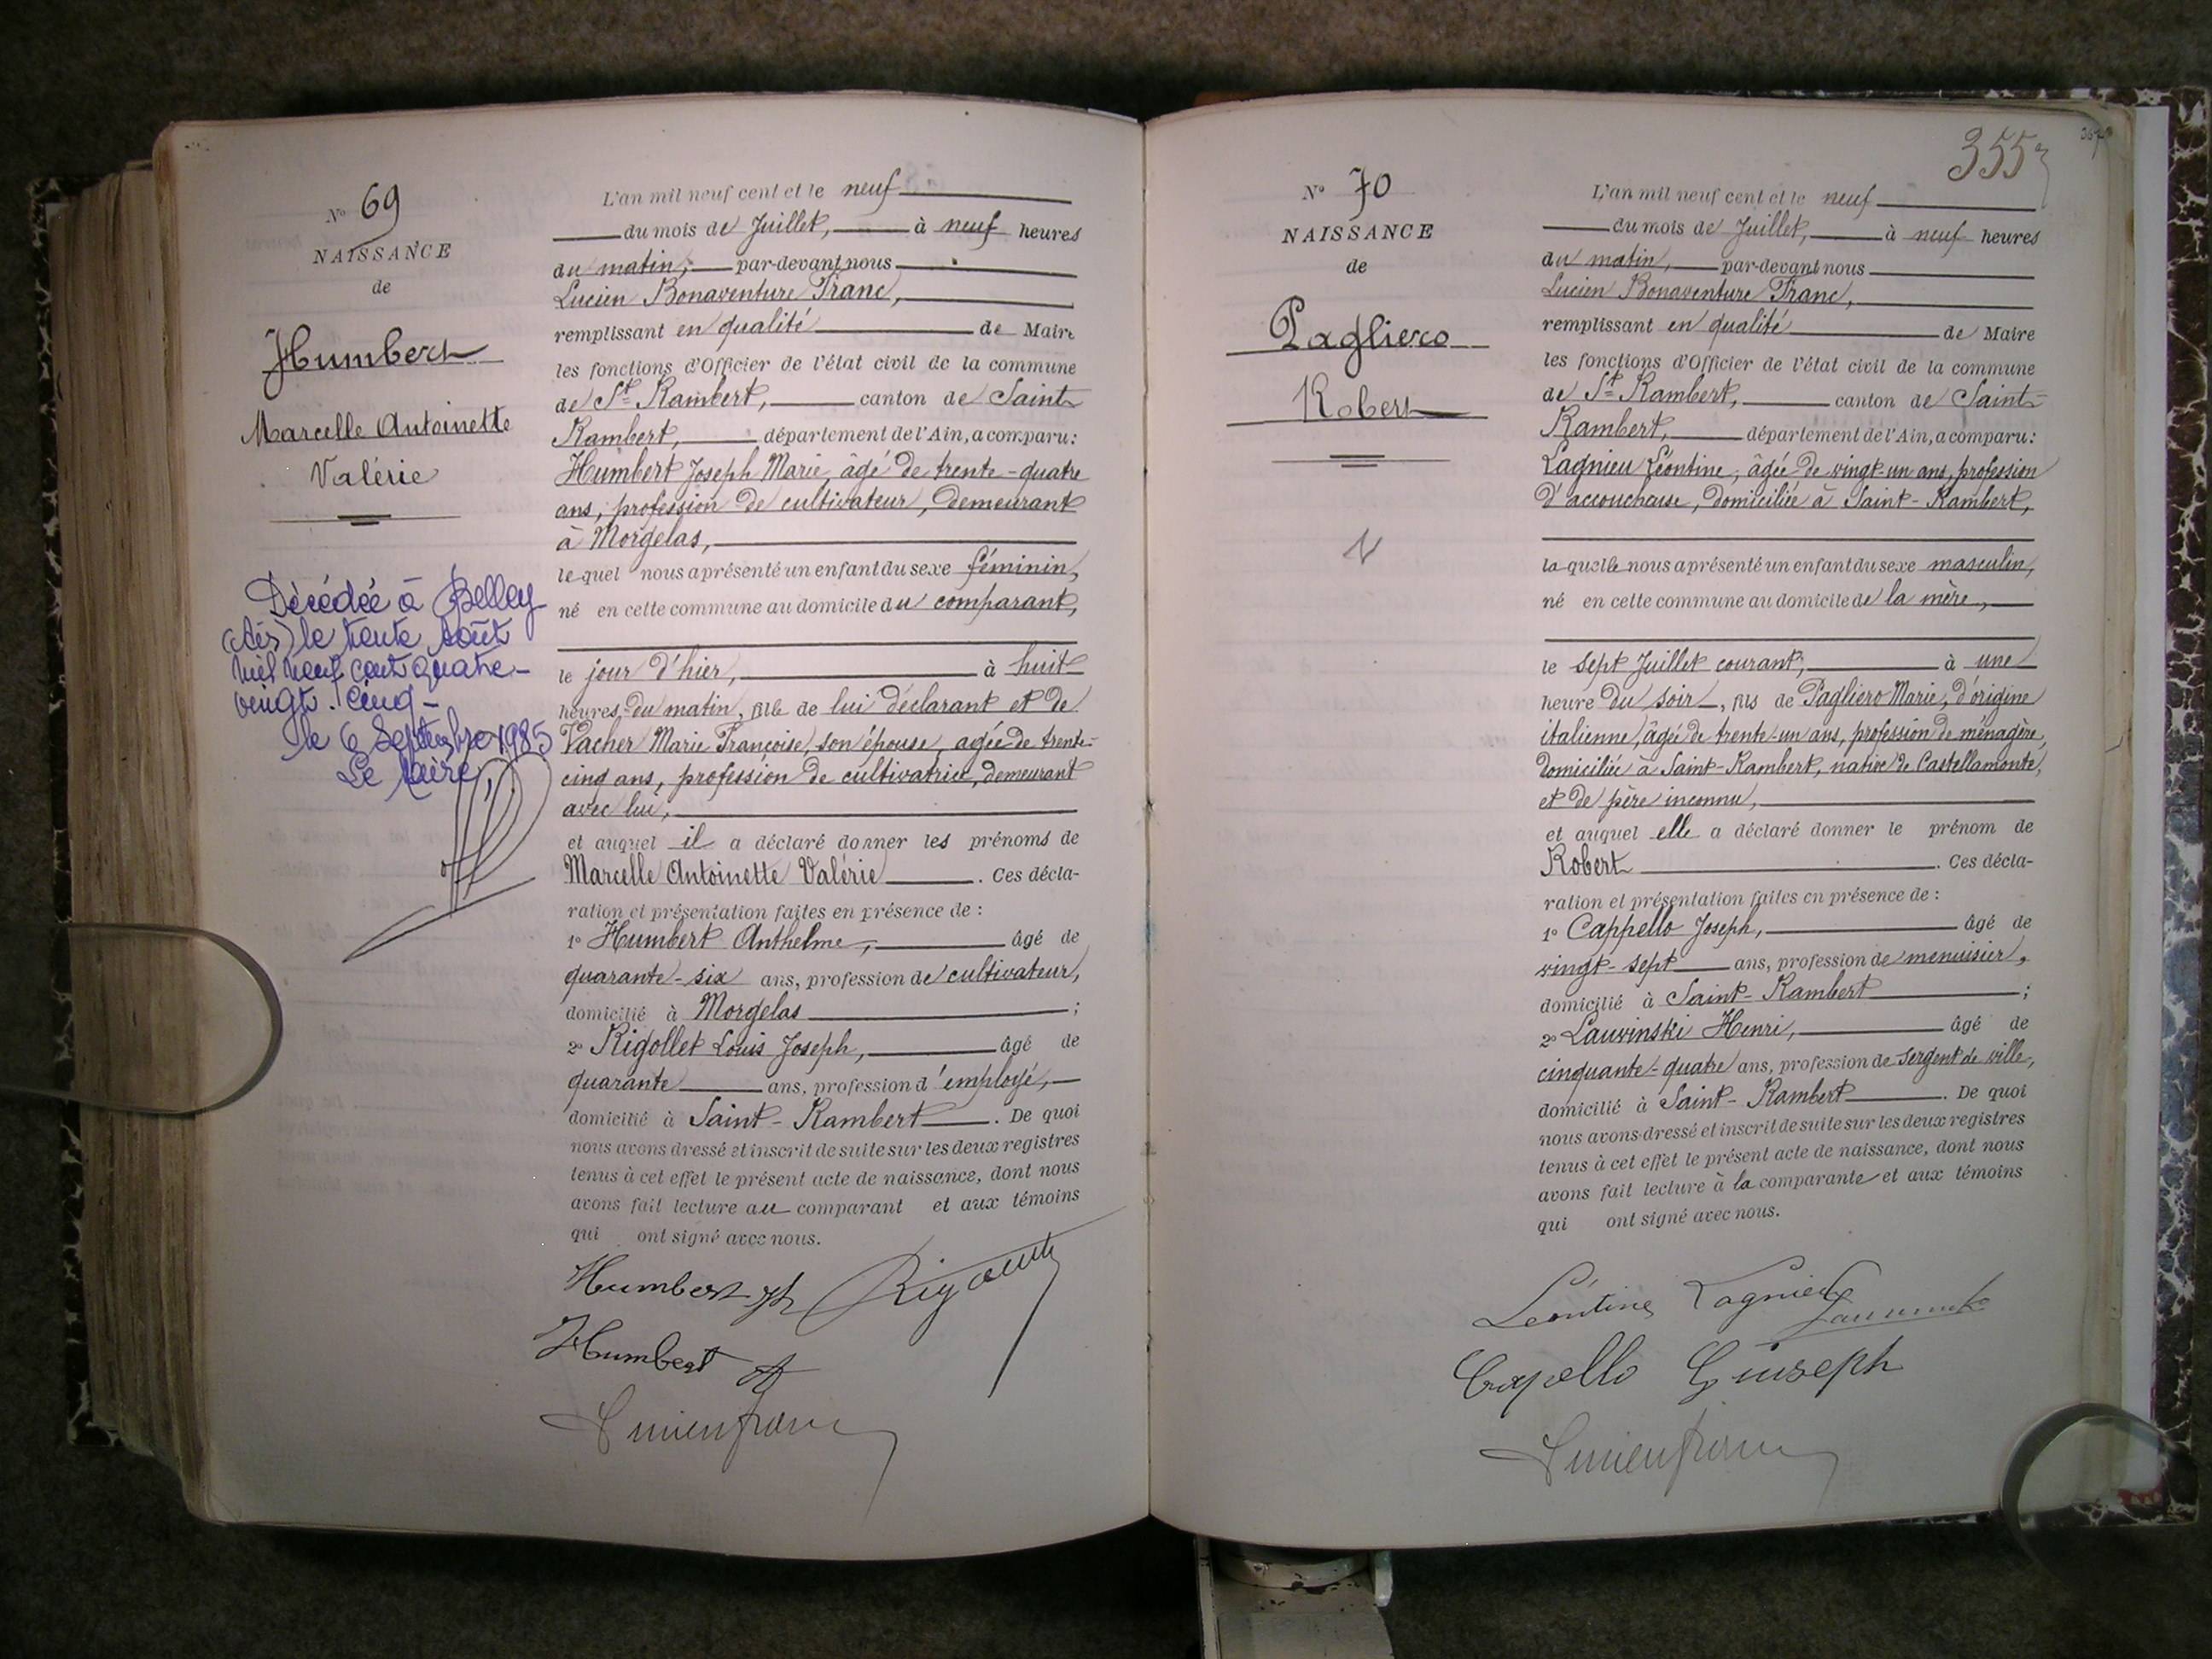 No 69
NAISSANCE
de
Humbert
Marcelle Antoinette
Valérie
Décédée à Belley
(Ain) le trente août
mil neuf cent quatre-
vingt-cinq-
le 6 Septembre 1985
Le Maire
L'an mil neuf cent et le neuf
du mois de Juillet, à neuf heures
du matin, par-devant nous
Lucien Bonaventure Franc,
remplissant en qualité de Maire
les fonctions d'Officier de l'état civil de la commune
de St Rambert, canton de Saint-
Rambert, département de l'Ain, a comparu:
Humbert Joseph Marie, âgé de trente-quatre
ans, profession de cultivateur, demeurant
à Morgelas,
lequel nous a présenté un enfant du sexe féminin,
né en cette commune au domicile du comparant,
le jour d'hier, à huit
heures du matin, fille de lui déclarant et de
Vacher Marie Françoise, son épouse, agée de trente-
cinq ans, profession de cultivatrice, demeurant
avec lui,
et auquel il a déclaré donner les prénoms de
Marcelle Antoinette Valérie. Ces décla-
ration et présentation faites en présence de :
1o Humbert Anthelme, âgé de
quarante-six ans, profession de cultivateur,
domicilié à Morgelas ;
2o Rigollet Louis Joseph, âgé de
quarante ans, profession d'employé,
domicilié à Saint-Rambert. De quoi
nous avons dressé et inscrit de suite sur les deux registres
tenus à cet effet le présent acte de naissance, dont nous
avons fait lecture au comparant et aux témoins
qui ont signé avec nous.
Humbert Jh
Humbert A
Lucien Franc
355
No 70
NAISSANCE
de
Pagliero
Robert
L'an mil neuf cent et le neuf
du mois de Juillet, à neuf heures
du matin, par-devant nous
Lucien Bonaventure Franc,
remplissant en qualité de Maire
les fonctions d'Officier de l'état civil de la commune
de St Rambert, canton de Saint-
Rambert, département de l'Ain, a comparu:
Lagnieu Léontine, âgée de vingt-un ans, profession
d'accoucheuse, domiciliée à Saint-Rambert,
laquelle nous a présenté un enfant du sexe masculin,
né en cette commune au domicile de la mère,
le sept Juillet courant, à une
heure du soir, fils de Pagliero Marie, d'origine
italienne, âgée de trente-un ans, profession de ménagère,
domiciliée à Saint-Rambert, native de Castellamonte,
et de père inconnu,
et auquel elle a déclaré donner le prénom de
Robert. Ces décla-
ration et présentation faites en présence de :
1o Cappello Joseph, âgé de
vingt-sept ans, profession de menuisier,
domicilié à Saint-Rambert ;
2o Lauvinski Henri, âgé de
cinquante-quatre ans, profession de sergent de ville,
domicilié à Saint-Rambert. De quoi
nous avons dressé et inscrit de suite sur les deux registres
tenus à cet effet le présent acte de naissance, dont nous
avons fait lecture à la comparante et aux témoins
qui ont signé avec nous.
Léontine Lagnieu
Capello Giuseph
Lucien Franc